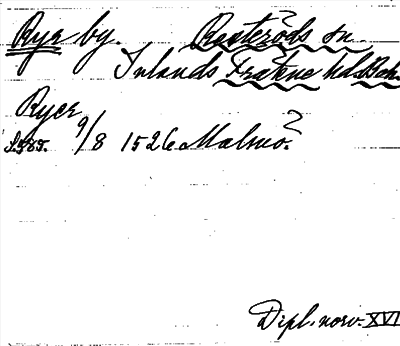 Rya by. Resteröds sn
Inlands Fräkne hd. Boh.
Ryer
S. 585. 9/8 1526 Malmö.
Dipl. norv. XVI